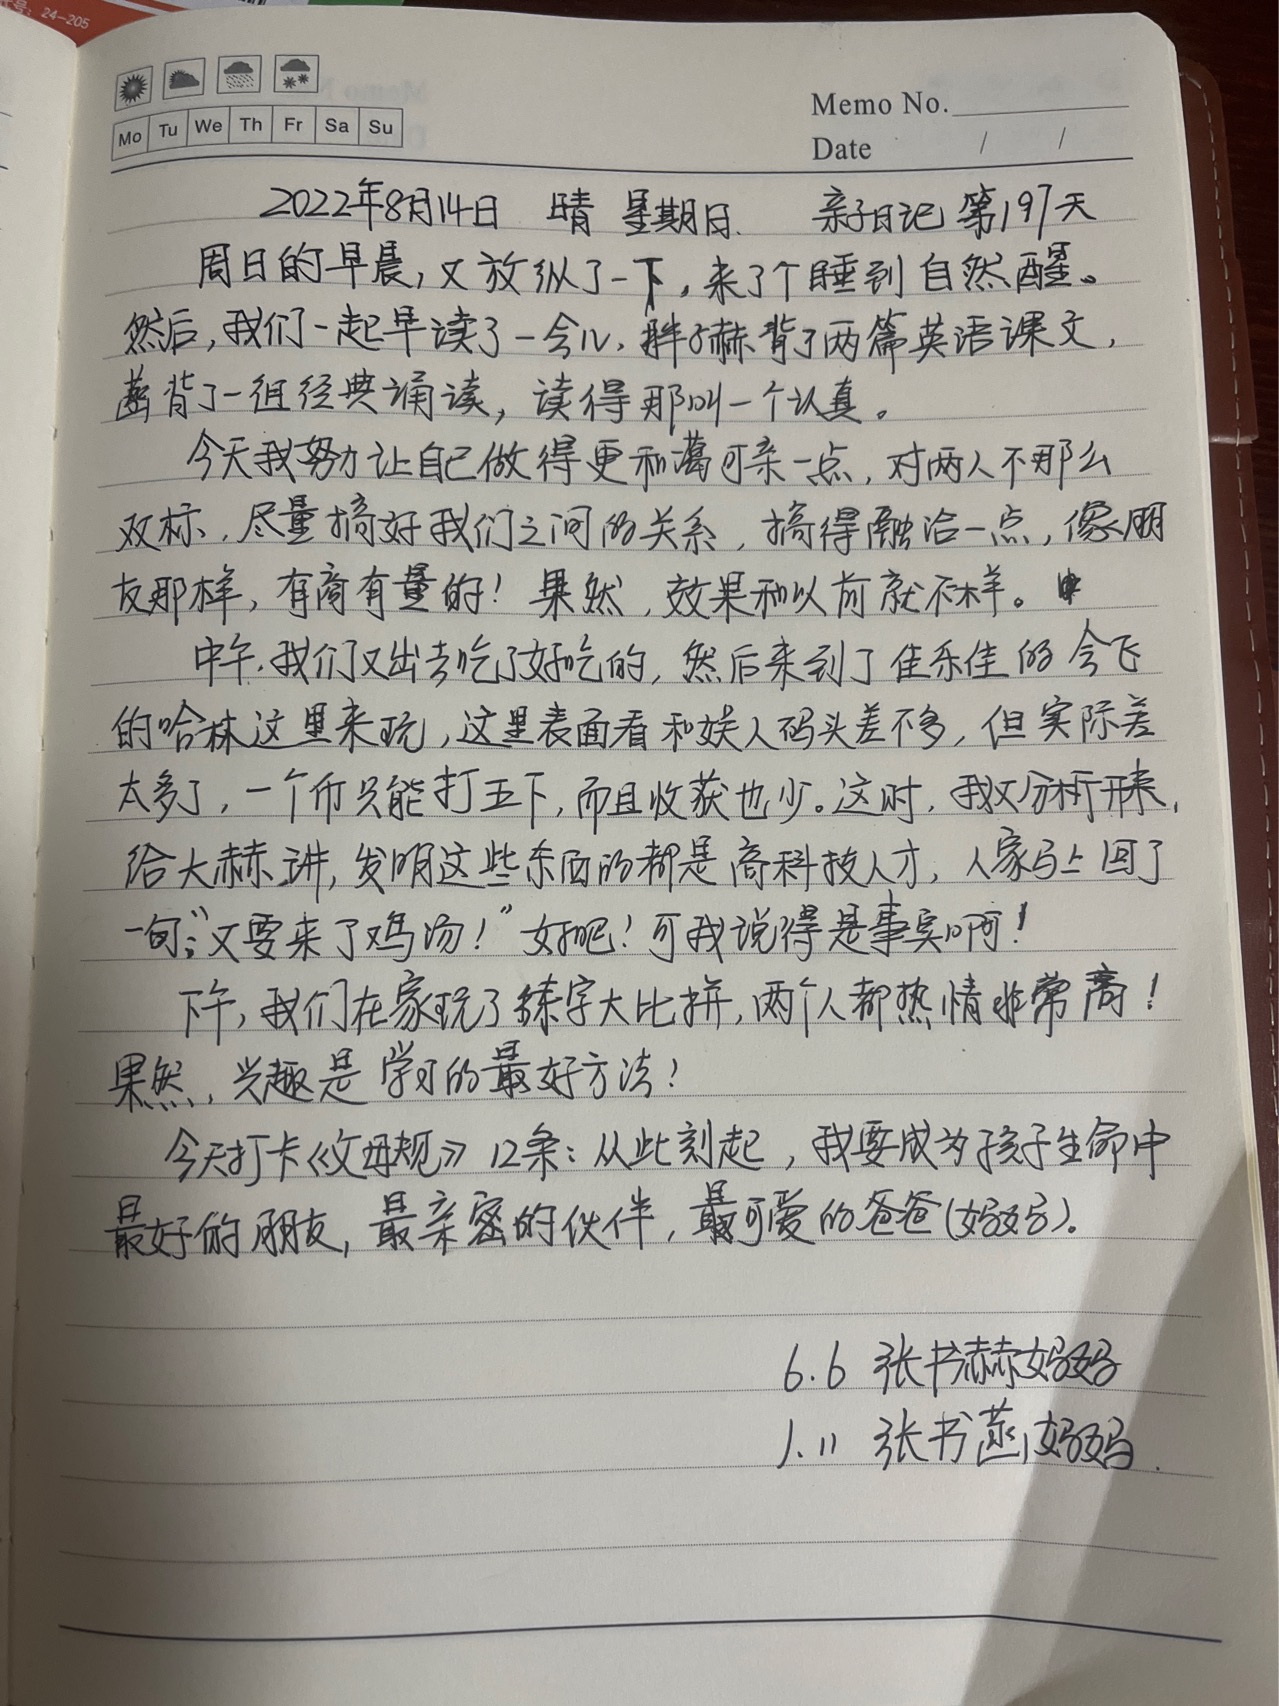 号：24-205
Mo Tu We Th Fr Sa Su
Memo No.
Date / /
2022年8月14日 晴 星期日. 亲子日记 第197天
周日的早晨，又放纵了一下，来了个睡到自然醒。
然后，我们一起早读了一会儿，胖子赫背了两篇英语课文，
燕背了一组经典诵读，读得那叫一个认真。
今天我努力让自己做得更和蔼可亲一点，对两人不那么
双标，尽量搞好我们之间的关系，搞得融洽一点，像朋
友那样，有商有量的！果然，效果和以前就不一样。
中午，我们又出去吃了好吃的，然后来到了佳乐佳的会飞
的哈林这里来玩，这里表面看和娱人码头差不多，但实际差
太多了，一个币只能打五下，而且收获也少。这时，我又分析开来，
给大赫讲，发明这些东西的都是高科技人才，人家马上回了
一句：“又要来了鸡汤！”好吧！可我说得是事实啊！
下午，我们在家玩了练字大比拼，两个人都热情非常高！
果然，兴趣是学习的最好方法！
今天打卡《父母规》12条：从此刻起，我要成为孩子生命中
最好的朋友，最亲密的伙伴，最可爱的爸爸（妈妈）。
6.6 张书赫妈妈
1.11 张书燕妈妈.